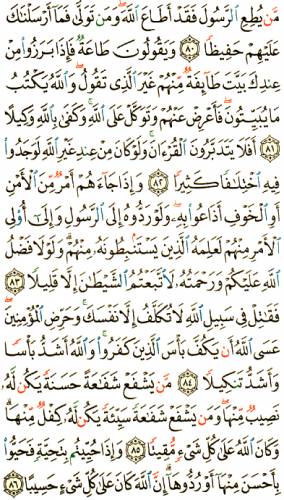 مَّن يُطِعِ ٱلرَّسُولَ فَقَدْ أَطَاعَ ٱللَّهَ ۖ وَمَن تَوَلَّىٰ فَمَآ أَرْسَلْنَٰكَ
عَلَيْهِمْ حَفِيظًا ٨٠ وَيَقُولُونَ طَاعَةٌ فَإِذَا بَرَزُوا۟ مِنْ
عِندِكَ بَيَّتَ طَآئِفَةٌ مِّنْهُمْ غَيْرَ ٱلَّذِى تَقُولُ ۖ وَٱللَّهُ يَكْتُبُ
مَا يُبَيِّتُونَ ۖ فَأَعْرِضْ عَنْهُمْ وَتَوَكَّلْ عَلَى ٱللَّهِ ۚ وَكَفَىٰ بِٱللَّهِ وَكِيلًا
٨١ أَفَلَا يَتَدَبَّرُونَ ٱلْقُرْءَانَ ۚ وَلَوْ كَانَ مِنْ عِندِ غَيْرِ ٱللَّهِ لَوَجَدُوا۟
فِيهِ ٱخْتِلَٰفًا كَثِيرًا ٨٢ وَإِذَا جَآءَهُمْ أَمْرٌ مِّنَ ٱلْأَمْنِ
أَوِ ٱلْخَوْفِ أَذَاعُوا۟ بِهِۦ ۖ وَلَوْ رَدُّوهُ إِلَى ٱلرَّسُولِ وَإِلَىٰٓ أُو۟لِى
ٱلْأَمْرِ مِنْهُمْ لَعَلِمَهُ ٱلَّذِينَ يَسْتَنۢبِطُونَهُۥ مِنْهُمْ ۗ وَلَوْلَا فَضْلُ
ٱللَّهِ عَلَيْكُمْ وَرَحْمَتُهُۥ لَٱتَّبَعْتُمُ ٱلشَّيْطَٰنَ إِلَّا قَلِيلًا ٨٣
فَقَٰتِلْ فِى سَبِيلِ ٱللَّهِ لَا تُكَلَّفُ إِلَّا نَفْسَكَ ۚ وَحَرِّضِ ٱلْمُؤْمِنِينَ ۖ
عَسَى ٱللَّهُ أَن يَكُفَّ بَأْسَ ٱلَّذِينَ كَفَرُوا۟ ۚ وَٱللَّهُ أَشَدُّ بَأْسًا
وَأَشَدُّ تَنكِيلًا ٨٤ مَّن يَشْفَعْ شَفَٰعَةً حَسَنَةً يَكُن لَّهُۥ
نَصِيبٌ مِّنْهَا ۖ وَمَن يَشْفَعْ شَفَٰعَةً سَيِّئَةً يَكُن لَّهُۥ كِفْلٌ مِّنْهَا ۗ
وَكَانَ ٱللَّهُ عَلَىٰ كُلِّ شَىْءٍ مُّقِيتًا ٨٥ وَإِذَا حُيِّيتُم بِتَحِيَّةٍ فَحَيُّوا۟
بِأَحْسَنَ مِنْهَآ أَوْ رُدُّوهَآ ۗ إِنَّ ٱللَّهَ كَانَ عَلَىٰ كُلِّ شَىْءٍ حَسِيبًا ٨٦